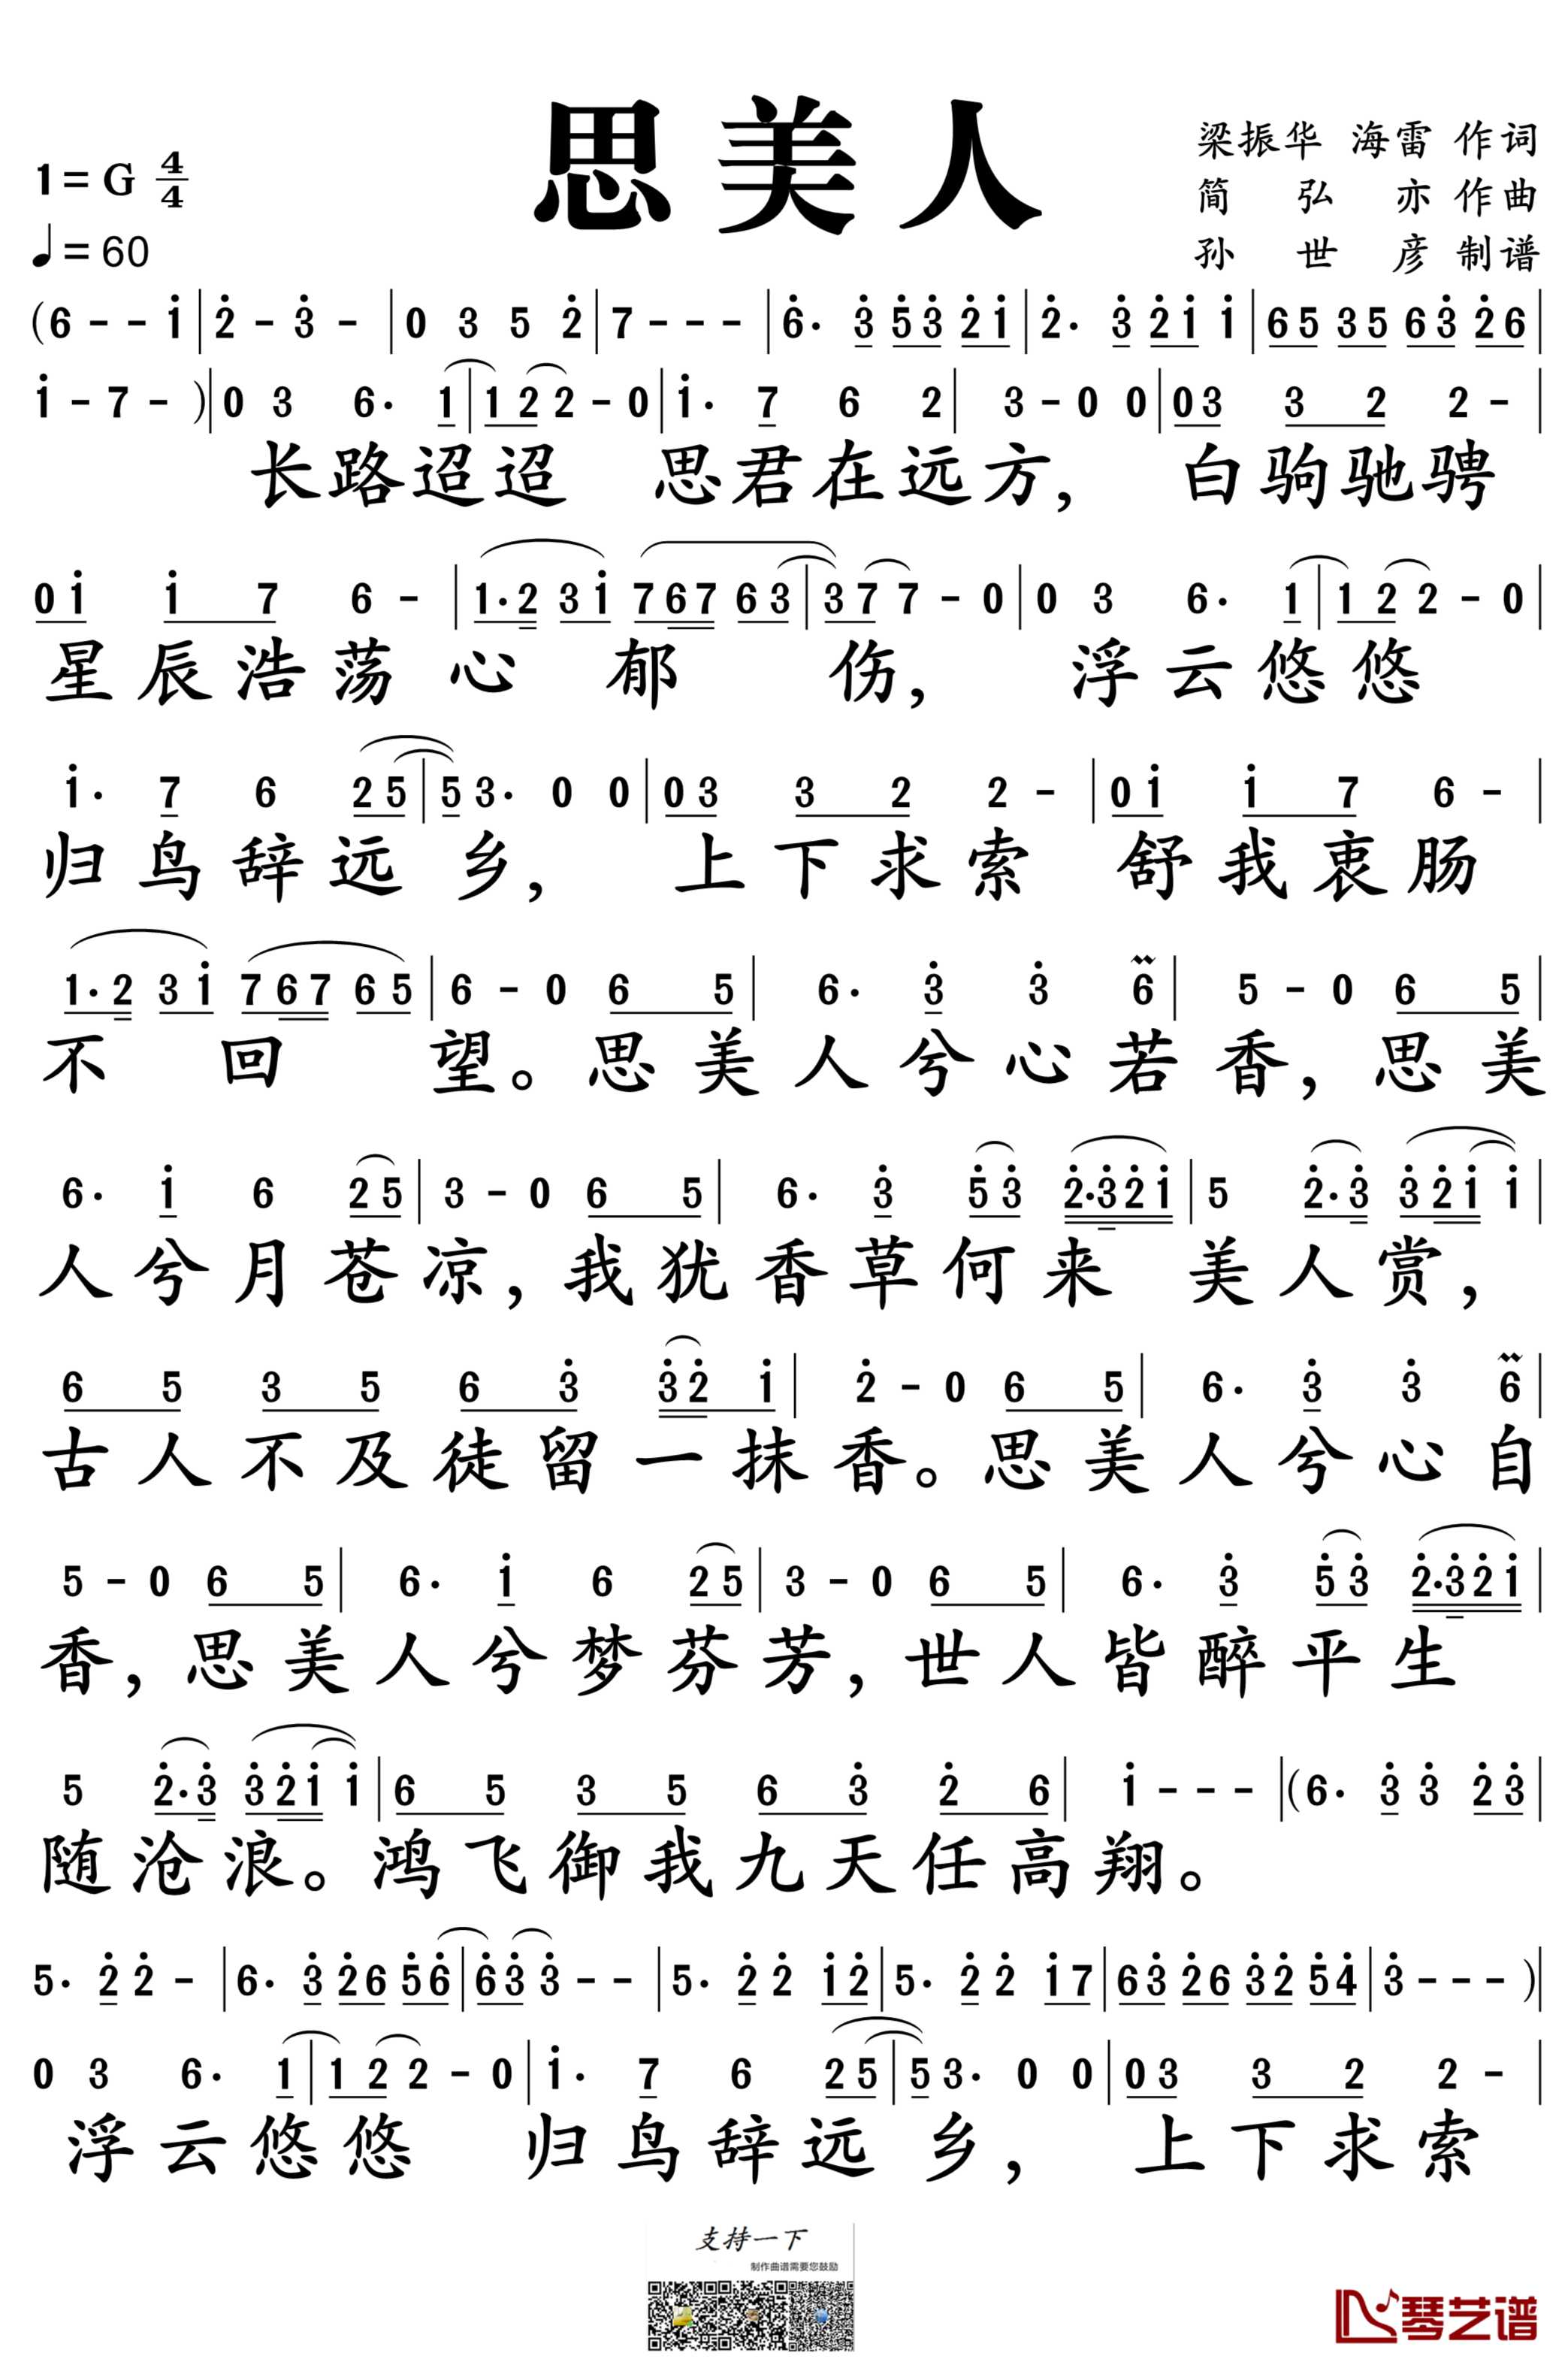 思美人
梁振华 海雷 作词
1=G 4/4
简弘亦 作曲
♩=60
孙世彦 制谱
(6 - - i̇ | 2̇ - 3̇ - | 0 3 5 2̇ | 7 - - - | 6̇· 3̇ 5̇ 3̇ 2̇ i̇ | 2̇· 3̇ 2̇ i̇ i̇ | 6 5 3 5 6 3̇ 2̇ 6 |
i̇ - 7 - ) | 0 3 6· 1 | 1 2 2 - 0 | i̇· 7 6 2 | 3 - 0 0 | 0 3 3 2 2 - |
长路迢迢 思君在远方, 白驹驰骋
0 i̇ i̇ 7 6 - | 1· 2 3 i̇ 7 6 7 6 3 | 3 7 7 - 0 | 0 3 6· 1 | 1 2 2 - 0 |
星辰浩荡心郁伤, 浮云悠悠
i̇· 7 6 2 5 | 5 3· 0 0 | 0 3 3 2 2 - | 0 i̇ i̇ 7 6 - |
归鸟辞远乡, 上下求索 舒我衷肠
1· 2 3 i̇ 7 6 7 6 5 | 6 - 0 6 5 | 6· 3̇ 3̇ 6 | 5 - 0 6 5 |
不回望。思美人兮心若香, 思美
6· i̇ 6 2 5 | 3 - 0 6 5 | 6· 3̇ 5̇ 3̇ 2̇· 3̇ 2̇ i̇ | 5 2̇· 3̇ 3̇ 2̇ i̇ i̇ |
人兮月苍凉, 我犹香草何来 美人赏,
6 5 3 5 6 3̇ 3̇ 2̇ i̇ | 2̇ - 0 6 5 | 6· 3̇ 3̇ 6 |
古人不及徒留一抹香。思美人兮心自
5 - 0 6 5 | 6· i̇ 6 2 5 | 3 - 0 6 5 | 6· 3̇ 5̇ 3̇ 2̇· 3̇ 2̇ i̇ |
香, 思美人兮梦芬芳, 世人皆醉平生
5 2̇· 3̇ 3̇ 2̇ i̇ i̇ | 6 5 3 5 6 3̇ 2̇ 6 | i̇ - - - | (6· 3̇ 3̇ 2̇ 3̇ |
随沧浪。鸿飞御我九天任高翔。
5· 2̇ 2̇ - | 6· 3̇ 2̇ 6 5̇ 6̇ | 6̇ 3̇ 3̇ - - | 5· 2̇ 2̇ i̇ 2̇ | 5· 2̇ 2̇ i̇ 7 | 6 3̇ 2̇ 6 3̇ 2̇ 5̇ 4̇ | 3̇ - - - ) |
0 3 6· 1 | 1 2 2 - 0 | i̇· 7 6 2 5 | 5 3· 0 0 | 0 3 3 2 2 - |
浮云悠悠 归鸟辞远乡, 上下求索
支持一下
制作曲谱需要您鼓励
琴艺谱